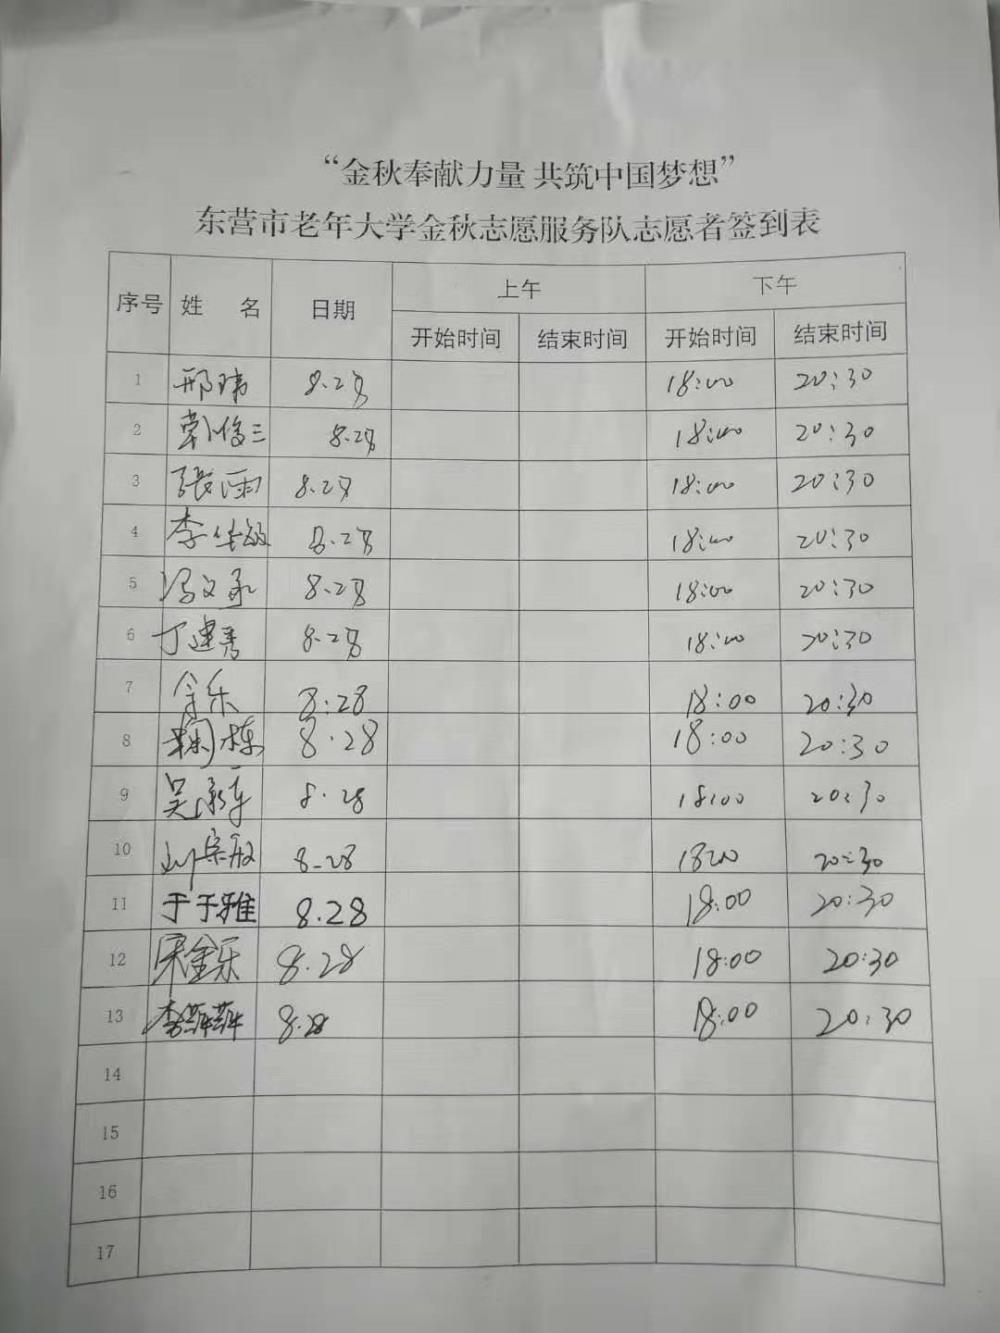 “金秋奉献力量 共筑中国梦想”
东营市老年大学金秋志愿服务队志愿者签到表
序号 姓 名 日期 上午 下午
开始时间 结束时间 开始时间 结束时间
1 邢玮 8.28 18:00 20:30
2 俊三 8.28 18:00 20:30
3 張雨 8.28 18:00 20:30
4 李华敏 8.28 18:00 20:30
5 冯文 8.28 18:00 20:30
6 丁建秀 8.28 18:00 20:30
7 乐 8:28 18:00 20:30
8 鞠栋 8.28 18:00 20:30
9 吴 8.28 18:00 20:30
10 刘宗 8.28 18:00 20:30
11 于子雅 8.28 18:00 20:30
12 宋金乐 8.28 18:00 20:30
13 李菲菲 8.28 18:00 20:30
14
15
16
17